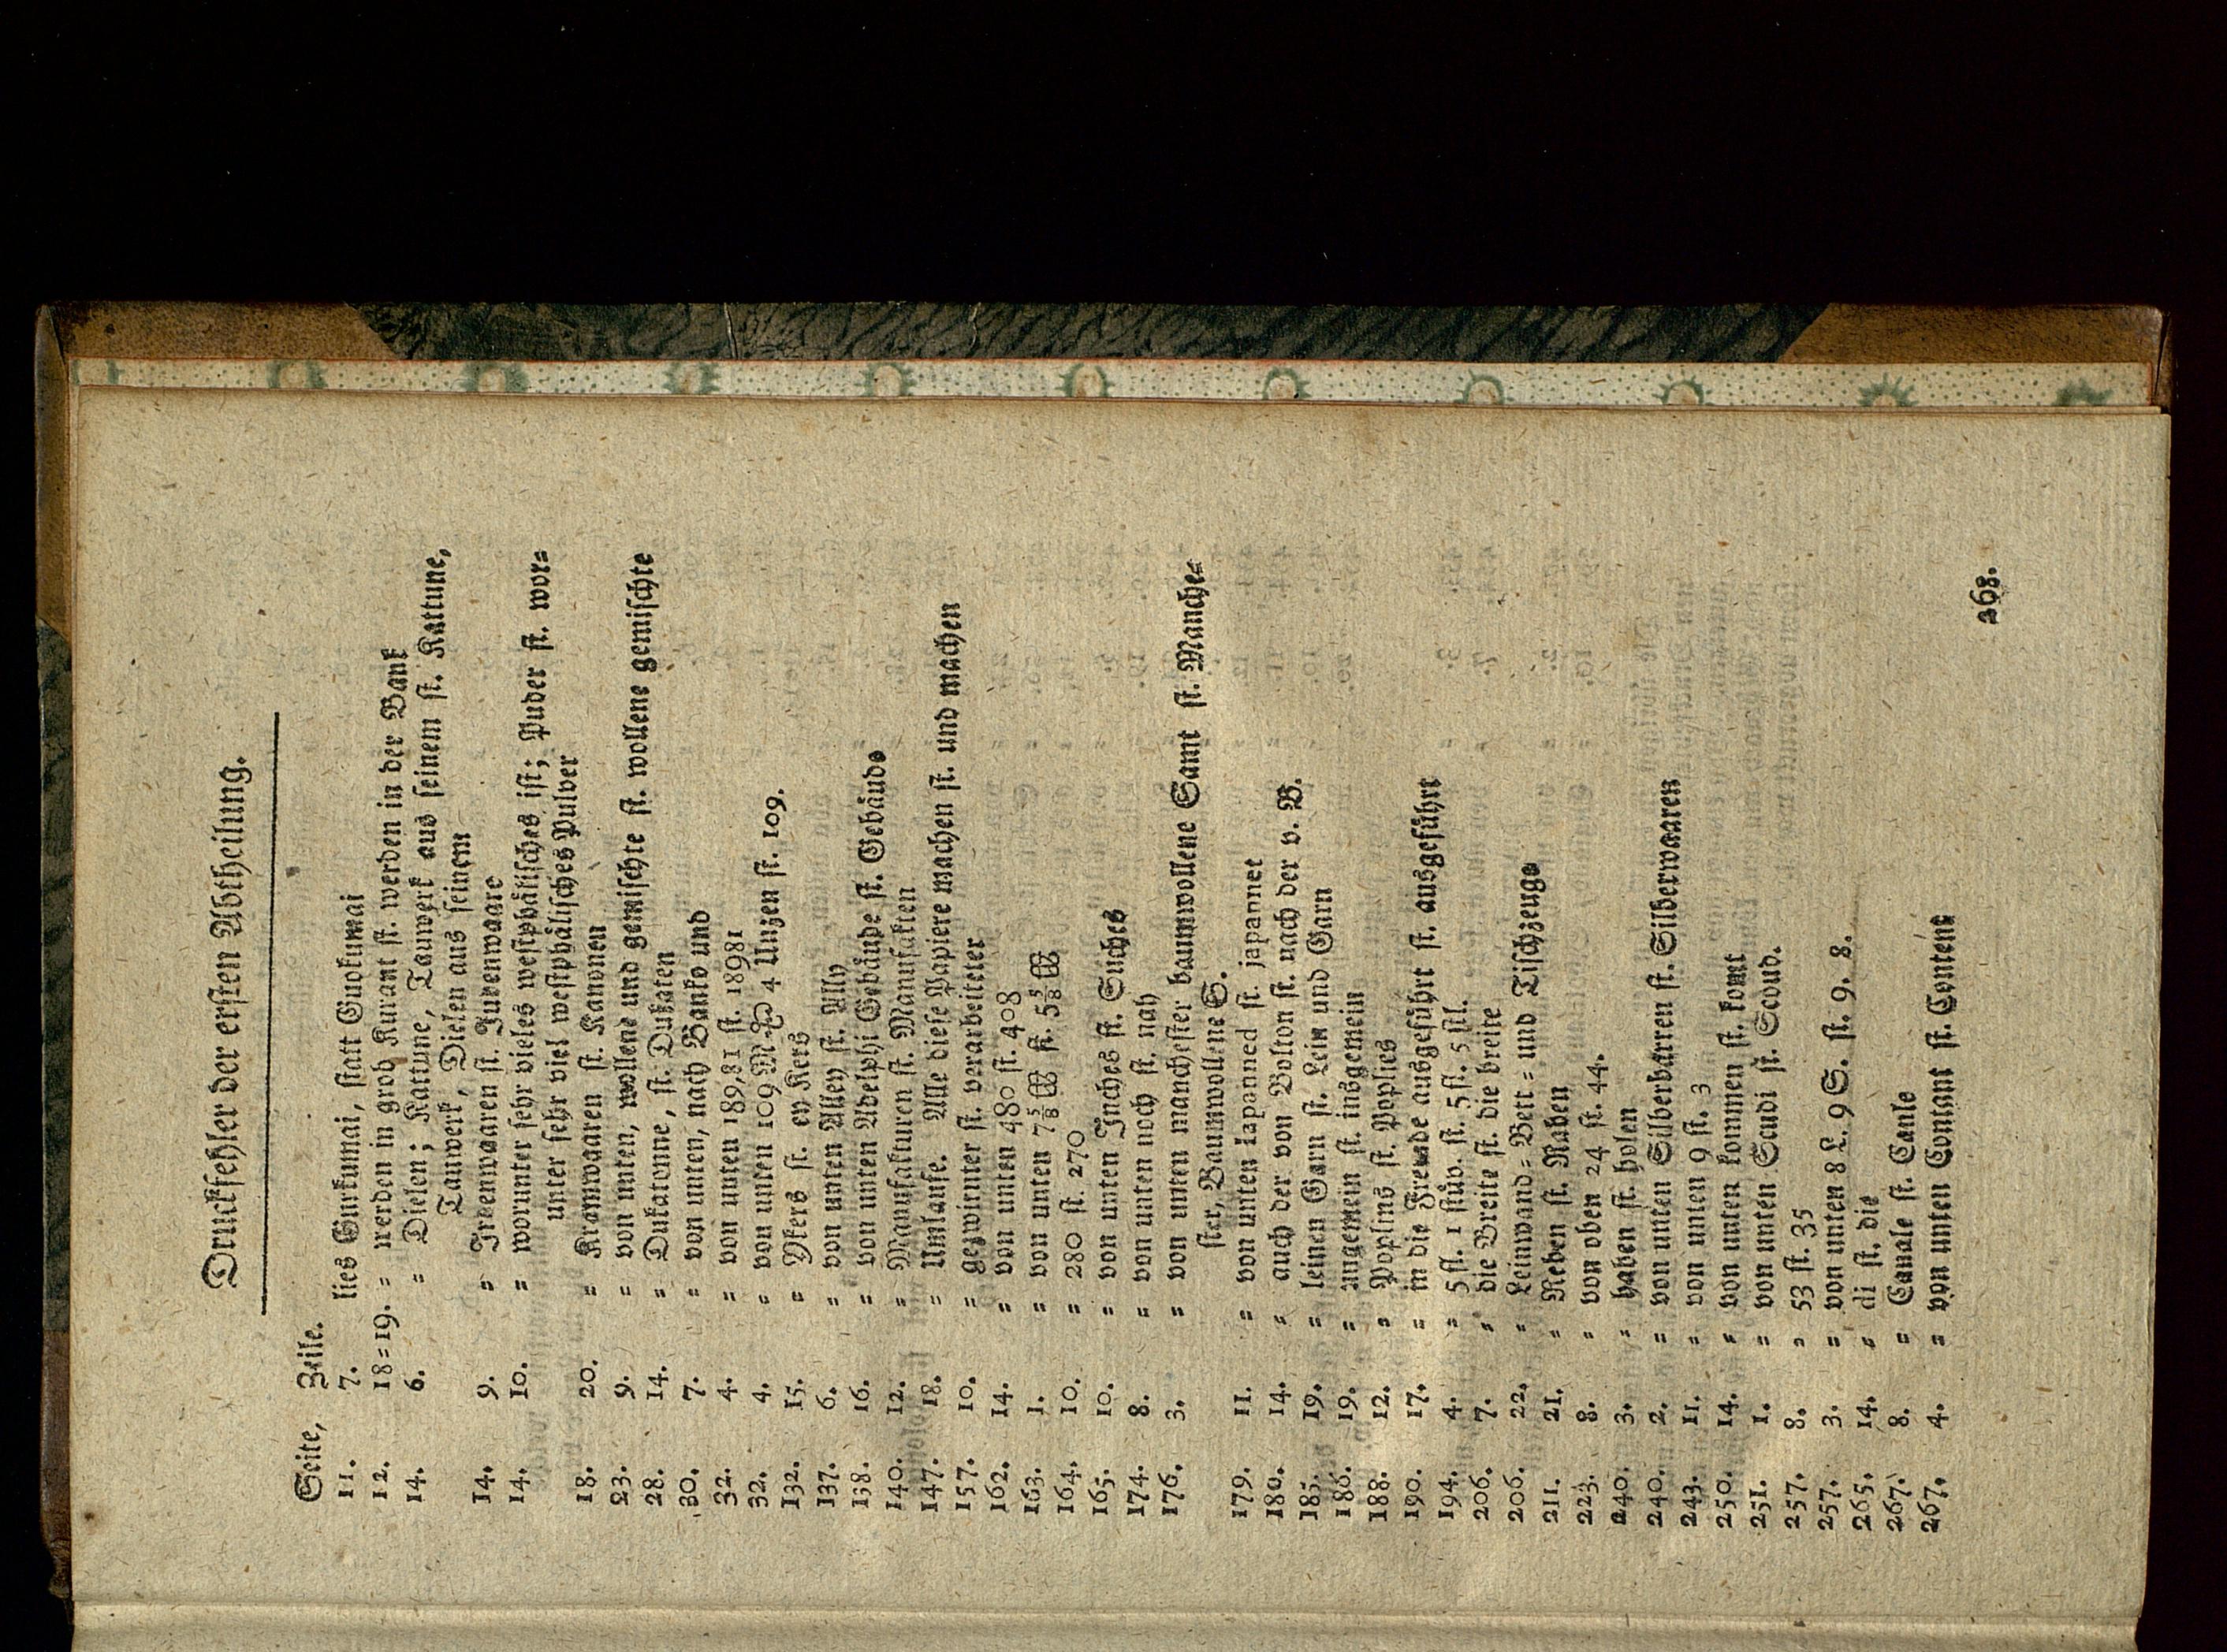 Druckfehler der ersten Abtheilung.
Seite, Zeile.
11. 7. lies Gurkumai, statt Guokumai
12. 18=19. = werden in grob Kurant st. werden in der Bank
14. 6. = Dielen; Kattune, Tauwerk aus seinem st. Kattune,
Tauwerk, Dielen aus seinem
14. 9. = Irdenwaaren st. Judenwaare
14. 10. = worunter sehr vieles westphälisches ist; Puder st. wor=
unter sehr viel westphälisches Pulver
18. 20. = Kramwaaren st. Kanonen
23. 9. = von unten, wollene und gemischte st. wollene gemischte
28. 14. = Dukatonne, st. Dukaten
30. 7. = von unten, nach Banko und
32. 4. = von unten 189,81 st. 18981
32. 4. = von unten 109 ℔ 4 Unzen st. 109.
132. 15. = Ykers st. en Kers
137. 6. = von unten Alley st. Ally
138. 16. = von unten Adelphi Gebäude st. Gebäude
140. 12. = Manufakturen st. Manufakten
147. 18. = Umlaufe. Alle diese Papiere machen st. und machen
157. 10. = gezwirnter st. verarbeitter
162. 14. = von unten 480 st. 408
163. 1. = von unten 7⅝ st. 5⅝
164. 10. = 280 st. 270
165. 10. = von unten Inches st. Suches
174. 8. = von unten noch st. nah
176. 3. = von unten manchester baumwollene Samt st. Manche=
ster, Baumwollene S.
179. 11. = von unten Iapanned st. japannet
180. 14. = auch der von Bolton st. nach der v. B.
185. 19. = leinen Garn st. Lein und Garn
186. 19. = ungemein st. insgemein
188. 12. = Poplins st. Poplies
190. 17. = in die Fremde ausgeführt st. ausgeführt
194. 4. = 5 fl. 1 stüv. st. 5 fl. 5 stl.
206. 7. = die Breite st. die breite
206. 22. = Leinwand= Bett= und Tischzeuge
211. 21. = Reben st. Raben
223. 8. = von oben 24 st. 44.
240. 3. = haben st. holen
240. 2. = von unten Silberbarren st. Silberwaaren
243. 11. = von unten 9 st. 3
250. 14. = von unten kommen st. komt
251. 1. = von unten Scudi st. Scoud.
257. 8. = 53 st. 35
257. 3. = von unten 8 L. 9 S. st. 9. 8.
265. 14. = di st. die
267. 8. = Canale st. Canle
267. 4. = von unten Contant st. Centent
268.